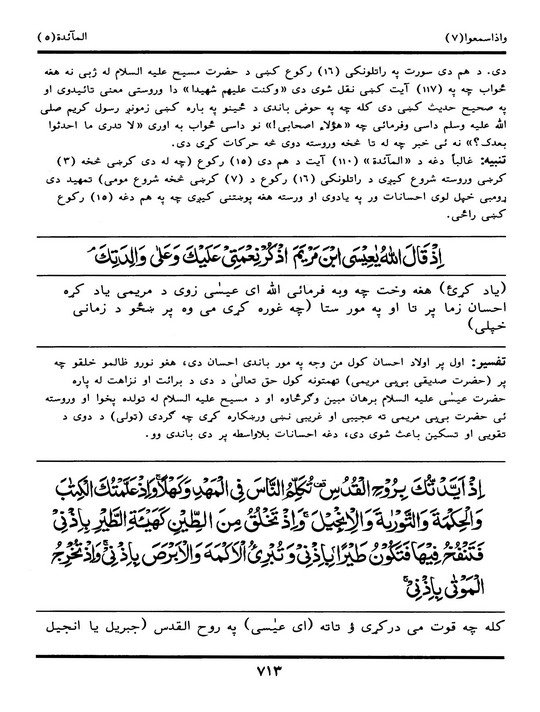 واذاسمعوا(۷)
المآئدة(۵)
دی. د هم دی سورت په راتلونکی (۱۶) رکوع کښی د حضرت مسیح علیه السلام له ژبی نه هغه
ځواب چه په (۱۱۷) آیت کښی نقل شوی دی «وکنت علیهم شهیدا» دا وروستی معنی تائیدوی او
په صحیح حدیث کښی دی کله چه په حوض باندی د ځینو په باره کښی زمونږ رسول کریم صلی
الله علیه وسلم داسی وفرمائی چه «هؤلاء اصحابی!» نو داسی ځواب به اوری «لا تدری ما احدثوا
بعدک؟» نه ئی خبر چه له تا څخه وروسته دوی څه حرکات کړی دی.
تنبیه: غالباً دغه د «المآئدة» (۱۱۰) آیت د هم دی (۱۵) رکوع (چه له دی کرښی څخه (۳)
کرښی وروسته شروع کیږی د راتلونکی (۱۶) رکوع د (۷) کرښی څخه شروع مومی) تمهید دی
ړومبی خپل لوی احسانات ور په یادوی او ورسته هغه پوښتنی کیږی چه په هم دغه (۱۵) رکوع
کښی راځی.
اِذْ قَالَ اللّٰهُ يٰعِيْسَى ابْنَ مَرْيَمَ اذْكُرْ نِعْمَتِيْ عَلَيْكَ وَعَلٰى وَالِدَتِكَ ۘ
(یاد کړئ) هغه وخت چه وبه فرمائی الله ای عیسٰی زوی د مریمی یاد کړه
احسان زما پر تا او په مور ستا (چه غوره کړی می وه پر ښځو د زمانی
خپلی)
تفسیر: اول پر اولاد احسان کول من وجه په مور باندی احسان دی، هغو نورو ظالمو خلقو چه
پر (حضرت صدیقی بی‌بی مریمی) تهمتونه کول حق تعالیٰ د دی د برائت او نزاهت له پاره
حضرت عیسٰی علیه السلام برهان مبین وګرځاوه او د مسیح علیه السلام له تولده پخوا او وروسته
ئی حضرت بی‌بی مریمی ته عجیبی او غریبی نښی ورښکاره کړی چه ګردی (ټولی) د دوی د
تقویی او تسکین باعث شوی دی، دغه احسانات بلاواسطه پر دی باندی وو.
اِذْ اَيَّدْتُّكَ بِرُوْحِ الْقُدُسِ ۫ تُكَلِّمُ النَّاسَ فِي الْمَهْدِ وَكَهْلًا ۚ وَاِذْ عَلَّمْتُكَ الْكِتٰبَ
وَالْحِكْمَةَ وَالتَّوْرٰىةَ وَالْاِنْجِيْلَ ۚ وَاِذْ تَخْلُقُ مِنَ الطِّيْنِ كَهَيْئَةِ الطَّيْرِ بِاِذْنِيْ
فَتَنْفُخُ فِيْهَا فَتَكُوْنُ طَيْرًۢا بِاِذْنِيْ وَتُبْرِئُ الْاَكْمَهَ وَالْاَبْرَصَ بِاِذْنِيْ ۚ وَاِذْ تُخْرِجُ
الْمَوْتٰى بِاِذْنِيْ ۚ
کله چه قوت می درکړی ؤ تاته (ای عیٰسی) په روح القدس (جبریل یا انجیل
۷۱۳